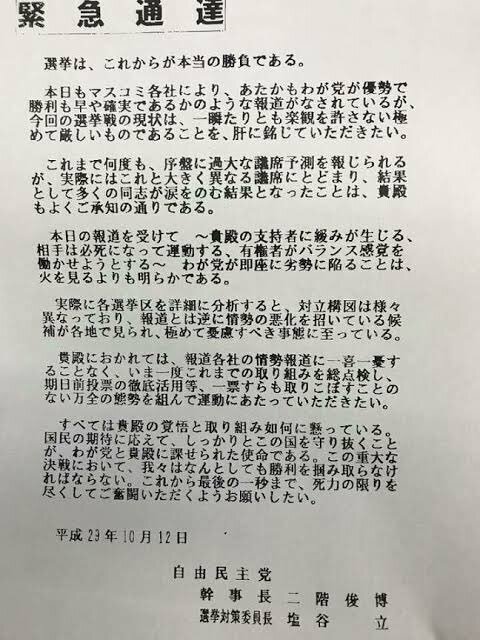 緊急通達
選挙は、これからが本当の勝負である。
本日もマスコミ各社により、あたかもわが党が優勢で
勝利も早や確実であるかのような報道がなされているが、
今回の選挙戦の現状は、一瞬たりとも楽観を許さない極
めて厳しいものであることを、肝に銘じていただきたい。
これまで何度も、序盤に過大な議席予測を報じられる
が、実際にはこれと大きく異なる議席にとどまり、結果
として多くの同志が涙をのむ結果となったことは、貴殿
もよくご承知の通りである。
本日の報道を受けて ～貴殿の支持者に緩みが生じる、
相手は必死になって運動する、有権者がバランス感覚を
働かせようとする～ わが党が即座に劣勢に陥ることは、
火を見るよりも明らかである。
実際に各選挙区を詳細に分析すると、対立構図は様々
異なっており、報道とは逆に情勢の悪化を招いている候
補が各地で見られ、極めて憂慮すべき事態に至っている。
貴殿におかれては、報道各社の情勢報道に一喜一憂す
ることなく、いま一度これまでの取り組みを総点検し、
期日前投票の徹底活用等、一票すらも取りこぼすことの
ない万全の態勢を組んで運動にあたっていただきたい。
すべては貴殿の覚悟と取り組み如何に懸っている。
国民の期待に応えて、しっかりとこの国を守り抜くこと
が、わが党と貴殿に課せられた使命である。この重大な
決戦において、我々はなんとしても勝利を掴み取らなけ
ればならない。これから最後の一秒まで、死力の限りを
尽くしてご奮闘いただくようお願いしたい。
平成29年10月12日
自由民主党
幹事長 二階俊博
選挙対策委員長 塩谷 立